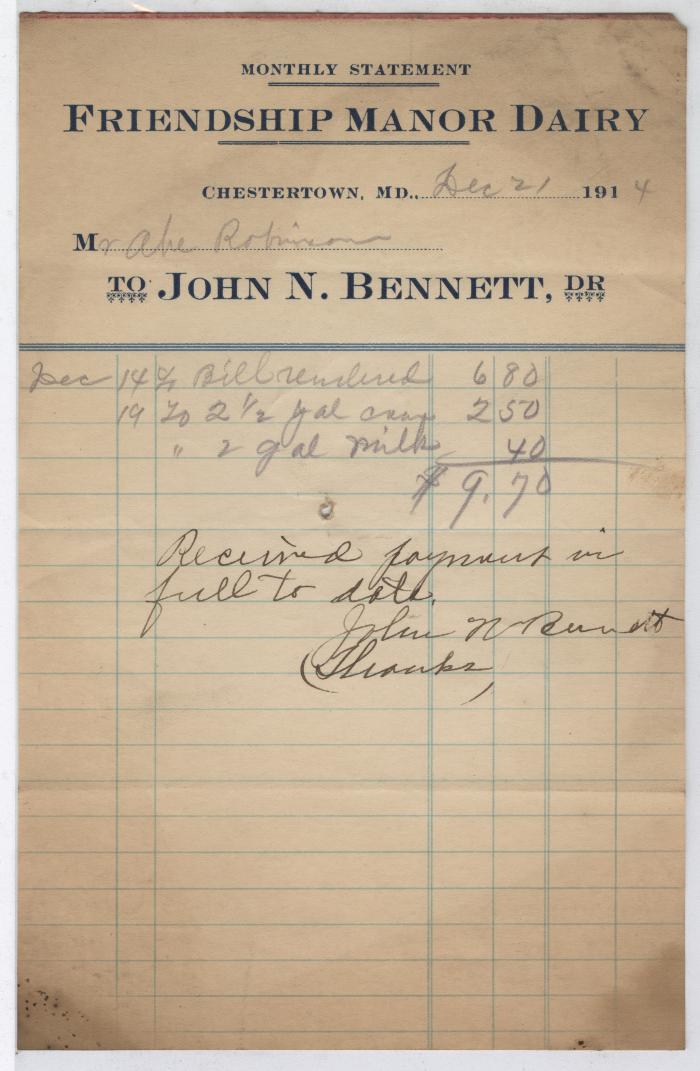 MONTHLY STATEMENT
FRIENDSHIP MANOR DAIRY
CHESTERTOWN, MD., Dec 21 1914
Mr Abe Robinson
TO JOHN N. BENNETT, DR
Dec 14 To Bill rendered 6 80
19 To 2 1/2 gal 2 50
" 2 gal milk 40
$ 9.70
Received payment in
full to date.
John N Bennett
(Thanks)